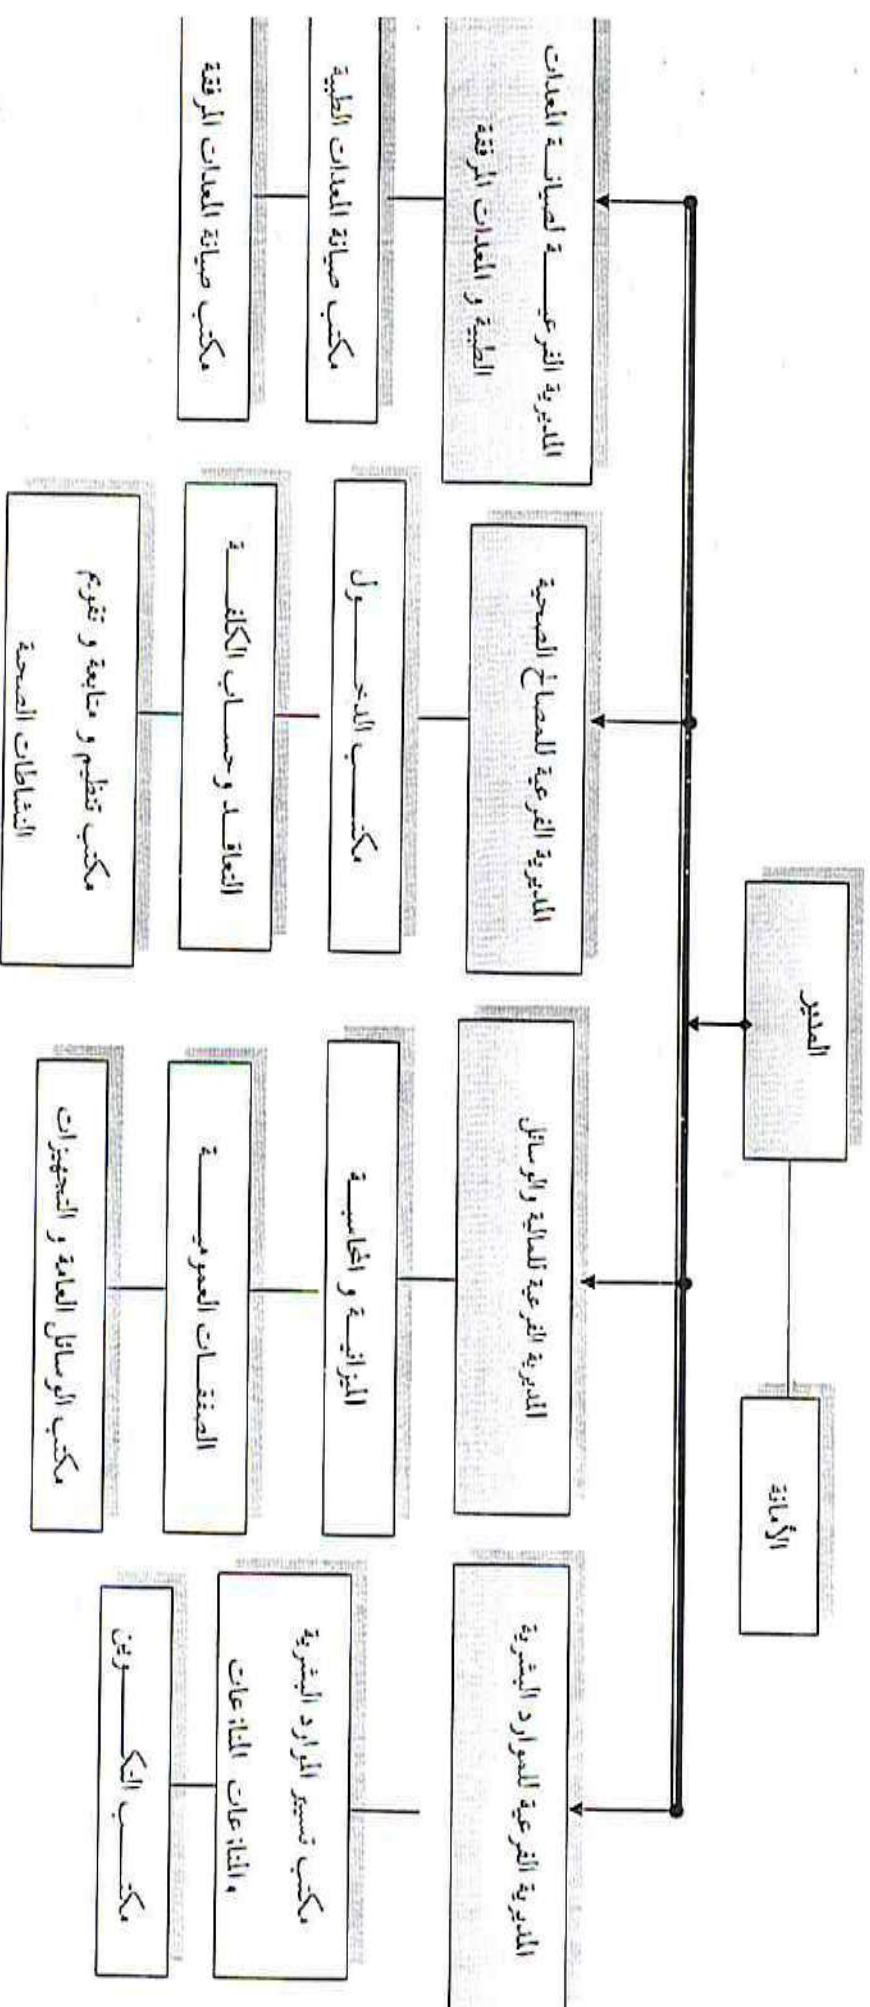 المدير
الأمانة
المديرية الفرعية للموارد البشرية
مكتب تسيير الموارد البشرية
والمنازعات المنازعات
مكتب التكوين
المديرية الفرعية للمالية والوسائل
الميزانية و المحاسبة
الصفقات العمومية
مكتب الوسائل العامة و التجهيزات
المديرية الفرعية للمصالح الصحية
مكتب الدخول
التعاقد وحساب الكلفة
مكتب تنظيم و متابعة و تقويم
النشاطات الصحة
المديرية الفرعية لصيانة المعدات
الطبية و المعدات المرفقة
مكتب صيانة المعدات الطبية
مكتب صيانة المعدات المرفقة